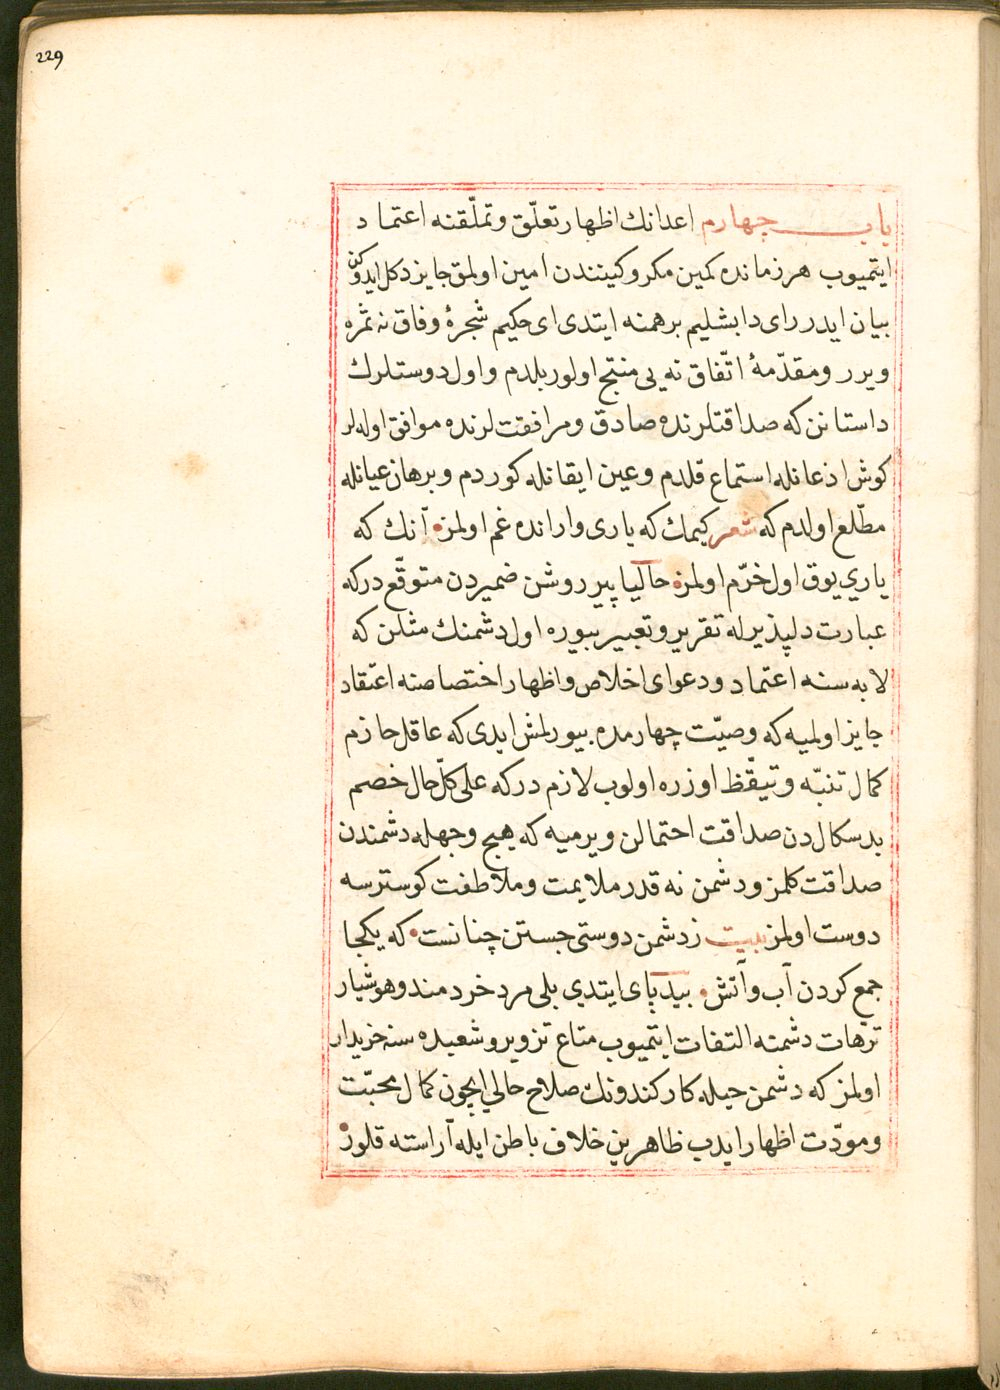 229
باب چهارم اعدانك اظهار تعلّق وتملّقنه اعتماد
ايتميوب هر زمانده كمين مكر وكينندن امين اولمق جايز دكل ايدوكن
بيان ايدر راى دابشليم برهمنه ايتدى اى حكيم شجرهٔ وفاق نه ثمره
ويرر ومقدّمهٔ اتّفاق نه يى منتج اولور بلدم واول دوستلرك
داستانن كه صداقتلرنده صادق ومرافقت لرنده موافق اوله لر
كوش اذعانله استماع قلدم وعين ايقانله كوردم وبرهان عيانله
مطّلع اولدم كه شعر كيمك كه يارى وار انده غم اولمز آنك كه
ياري يوق اول خرّم اولمز حاليا پير روشن ضميردن متوقّع دركه
عبارت دلپذيرله تقرير وتعبير بيوره اول دشمنك مثلن كه
لابه سنه اعتماد ودعواى اخلاص واظهار اختصاصنه اعتقاد
جايز اولميه كه وصيّت چهارمده بيورلمش ايدى كه عاقل حازم
كمال تنبّه وتيقّظ اوزره اولوب لازم دركه على كلّ حال خصم
بدسكال دن صداقت احتمالن ويرميه كه هيچ وجهله دشمندن
صداقت كلمز ودشمن نه قدر ملايمت وملاطفت كوسترسه
دوست اولمز بيت زدشمن دوستى جستن چنانست كه يكجا
جمع كردن آب وآتش بيدپاى ايتدي بلى مرد خردمند وهوشيار
ترهات دشمنه التفات ايتميوب متاع تزوير وشعبده سنه خريدار
اولمز كه دشمن حيله كار كندونك صلاح حالي ايچون كمال محبّت
ومودّت اظهار ايدب ظاهرين خلاف باطن ايله آراسته قلور